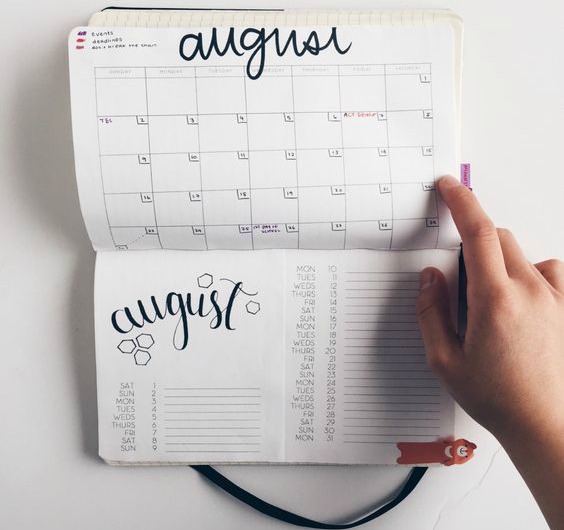 Events
deadlines
don't break the chain
august
SUNDAY MONDAY TUESDAY WEDNESDAY THURSDAY FRIDAY SATURDAY
1
2 3 4 5 6 7 8
9 10 11 12 13 14 15
16 17 18 19 20 21 22
23 24 25 26 27 28 29
30
august
SAT 1
SUN 2
MON 3
TUES 4
WEDS 5
THURS 6
FRI 7
SAT 8
SUN 9
MON 10
TUES 11
WEDS 12
THURS 13
FRI 14
SAT 15
SUN 16
MON 17
TUES 18
WEDS 19
THURS 20
FRI 21
SAT 22
SUN 23
MON 24
TUES 25
WEDS 26
THURS 27
FRI 28
SAT 29
SUN 30
MON 31